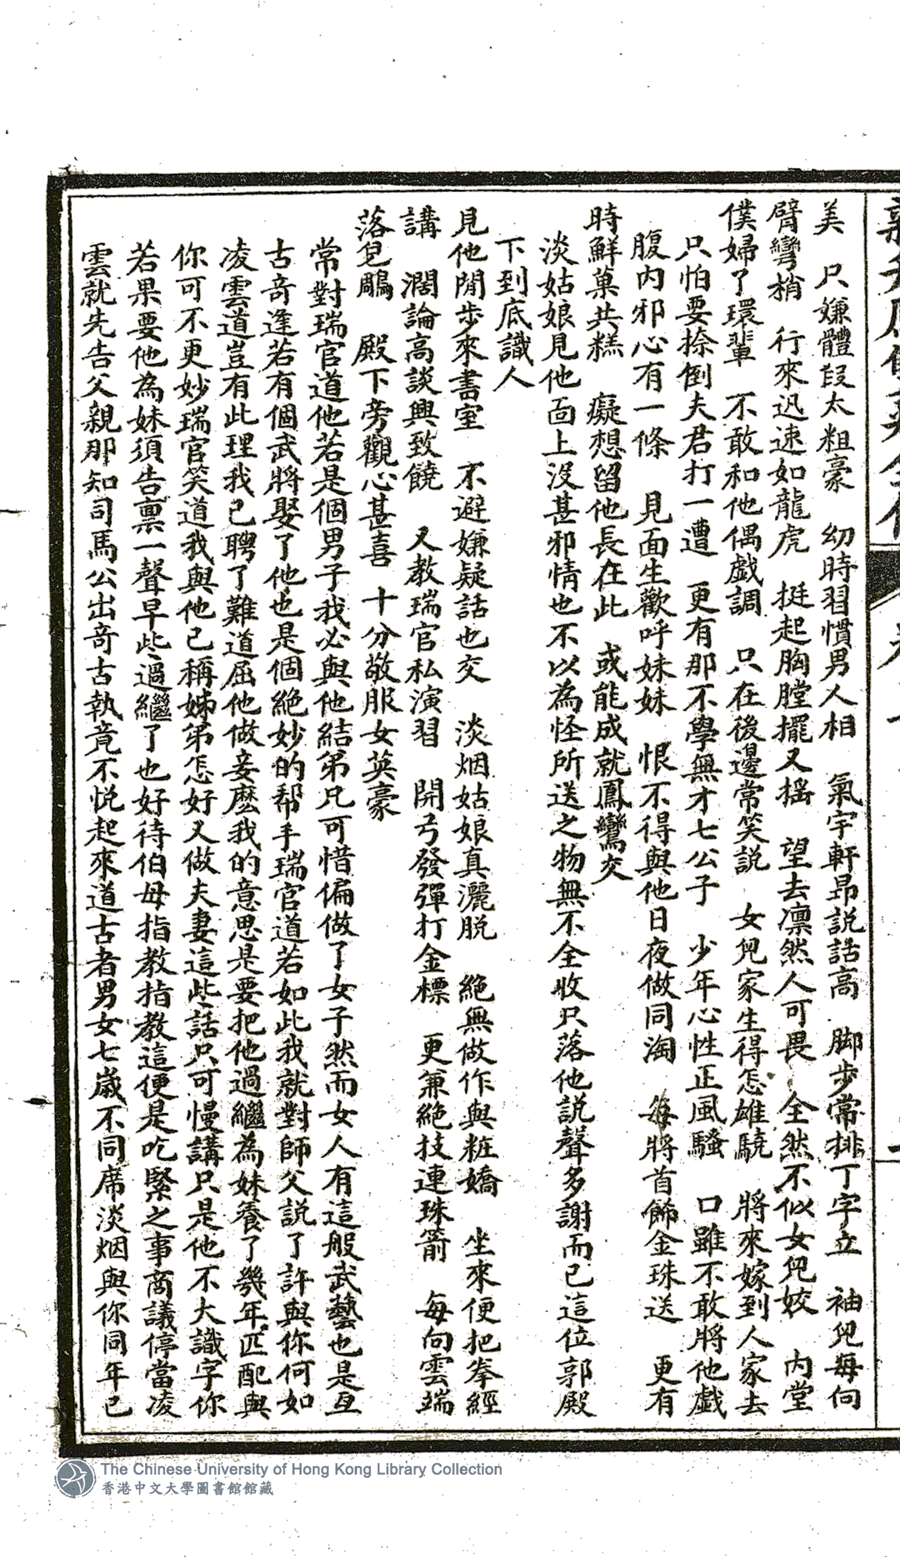 美　只嫌體段太粗豪　幼時習慣男人相　氣宇軒昂説話高　脚步常排丁字立　袖兒每向
臂彎梢　行來迅速如龍虎　挺起胸膛擺又搖　望去凛然人可畏　全然不似女兒姣　内堂
僕婦了環輩　不敢和他偶戲調　只在後邊常笑説　女兒家生得怎雄驍　將來嫁到人家去
只怕要捺倒夫君打一遭　更有那不學無才七公子　少年心性正風騷　口雖不敢將他戲
腹内邪心有一條　見面生歡呼妹妹　恨不得與他日夜做同淘　每將首飾金珠送　更有
時鮮菓共糕　癡想留他長在此　或能成就鳳鸞交
淡姑娘見他面上没甚邪情也不以為怪所送之物無不全收只落他説聲多謝而已這位郭殿
下到底識人
見他閒步來書室　不避嫌疑話也交　淡烟姑娘真灑脱　絶無做作與粧嬌　坐來便把拳經
講　濶論高談興致饒　又教瑞官私演習　開弓發彈打金標　更兼絶技連珠箭　每向雲端
落皃鵰　殿下旁觀心甚喜　十分敬服女英豪
常對瑞官道他若是個男子我必與他結弟兄可惜偏做了女子然而女人有這般武藝也是亙
古奇逢若有個武將娶了他也是個絶妙的帮手瑞官道若如此我就對師父説了許與你何如
凌雲道豈有此理我已聘了難道屈他做妾麽我的意思是要把他過繼為妹養了幾年匹配與
你可不更妙瑞官笑道我與他已稱姊弟怎好又做夫妻這些話只可慢講只是他不大識字你
若果要他為妹須告禀一聲早些過繼了也好待伯母指教指教這便是吃緊之事商議停當凌
雲就先告父親那知司馬公出奇古執竟不悦起來道古者男女七歲不同席淡烟與你同年已
The Chinese University of Hong Kong Library Collection
香港中文大學圖書館館藏